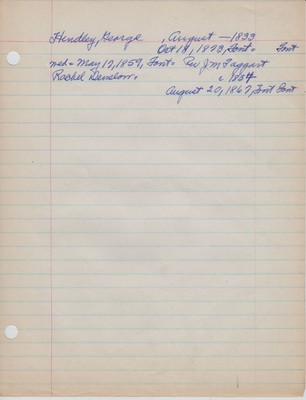 Hendley, George , August — 1833
Oct 14, 1873, Font. Font
md. May 17, 1859, Font. Rev J M Taggart
Rachel Denslow. c 1834
August 20, 1867, Font Font